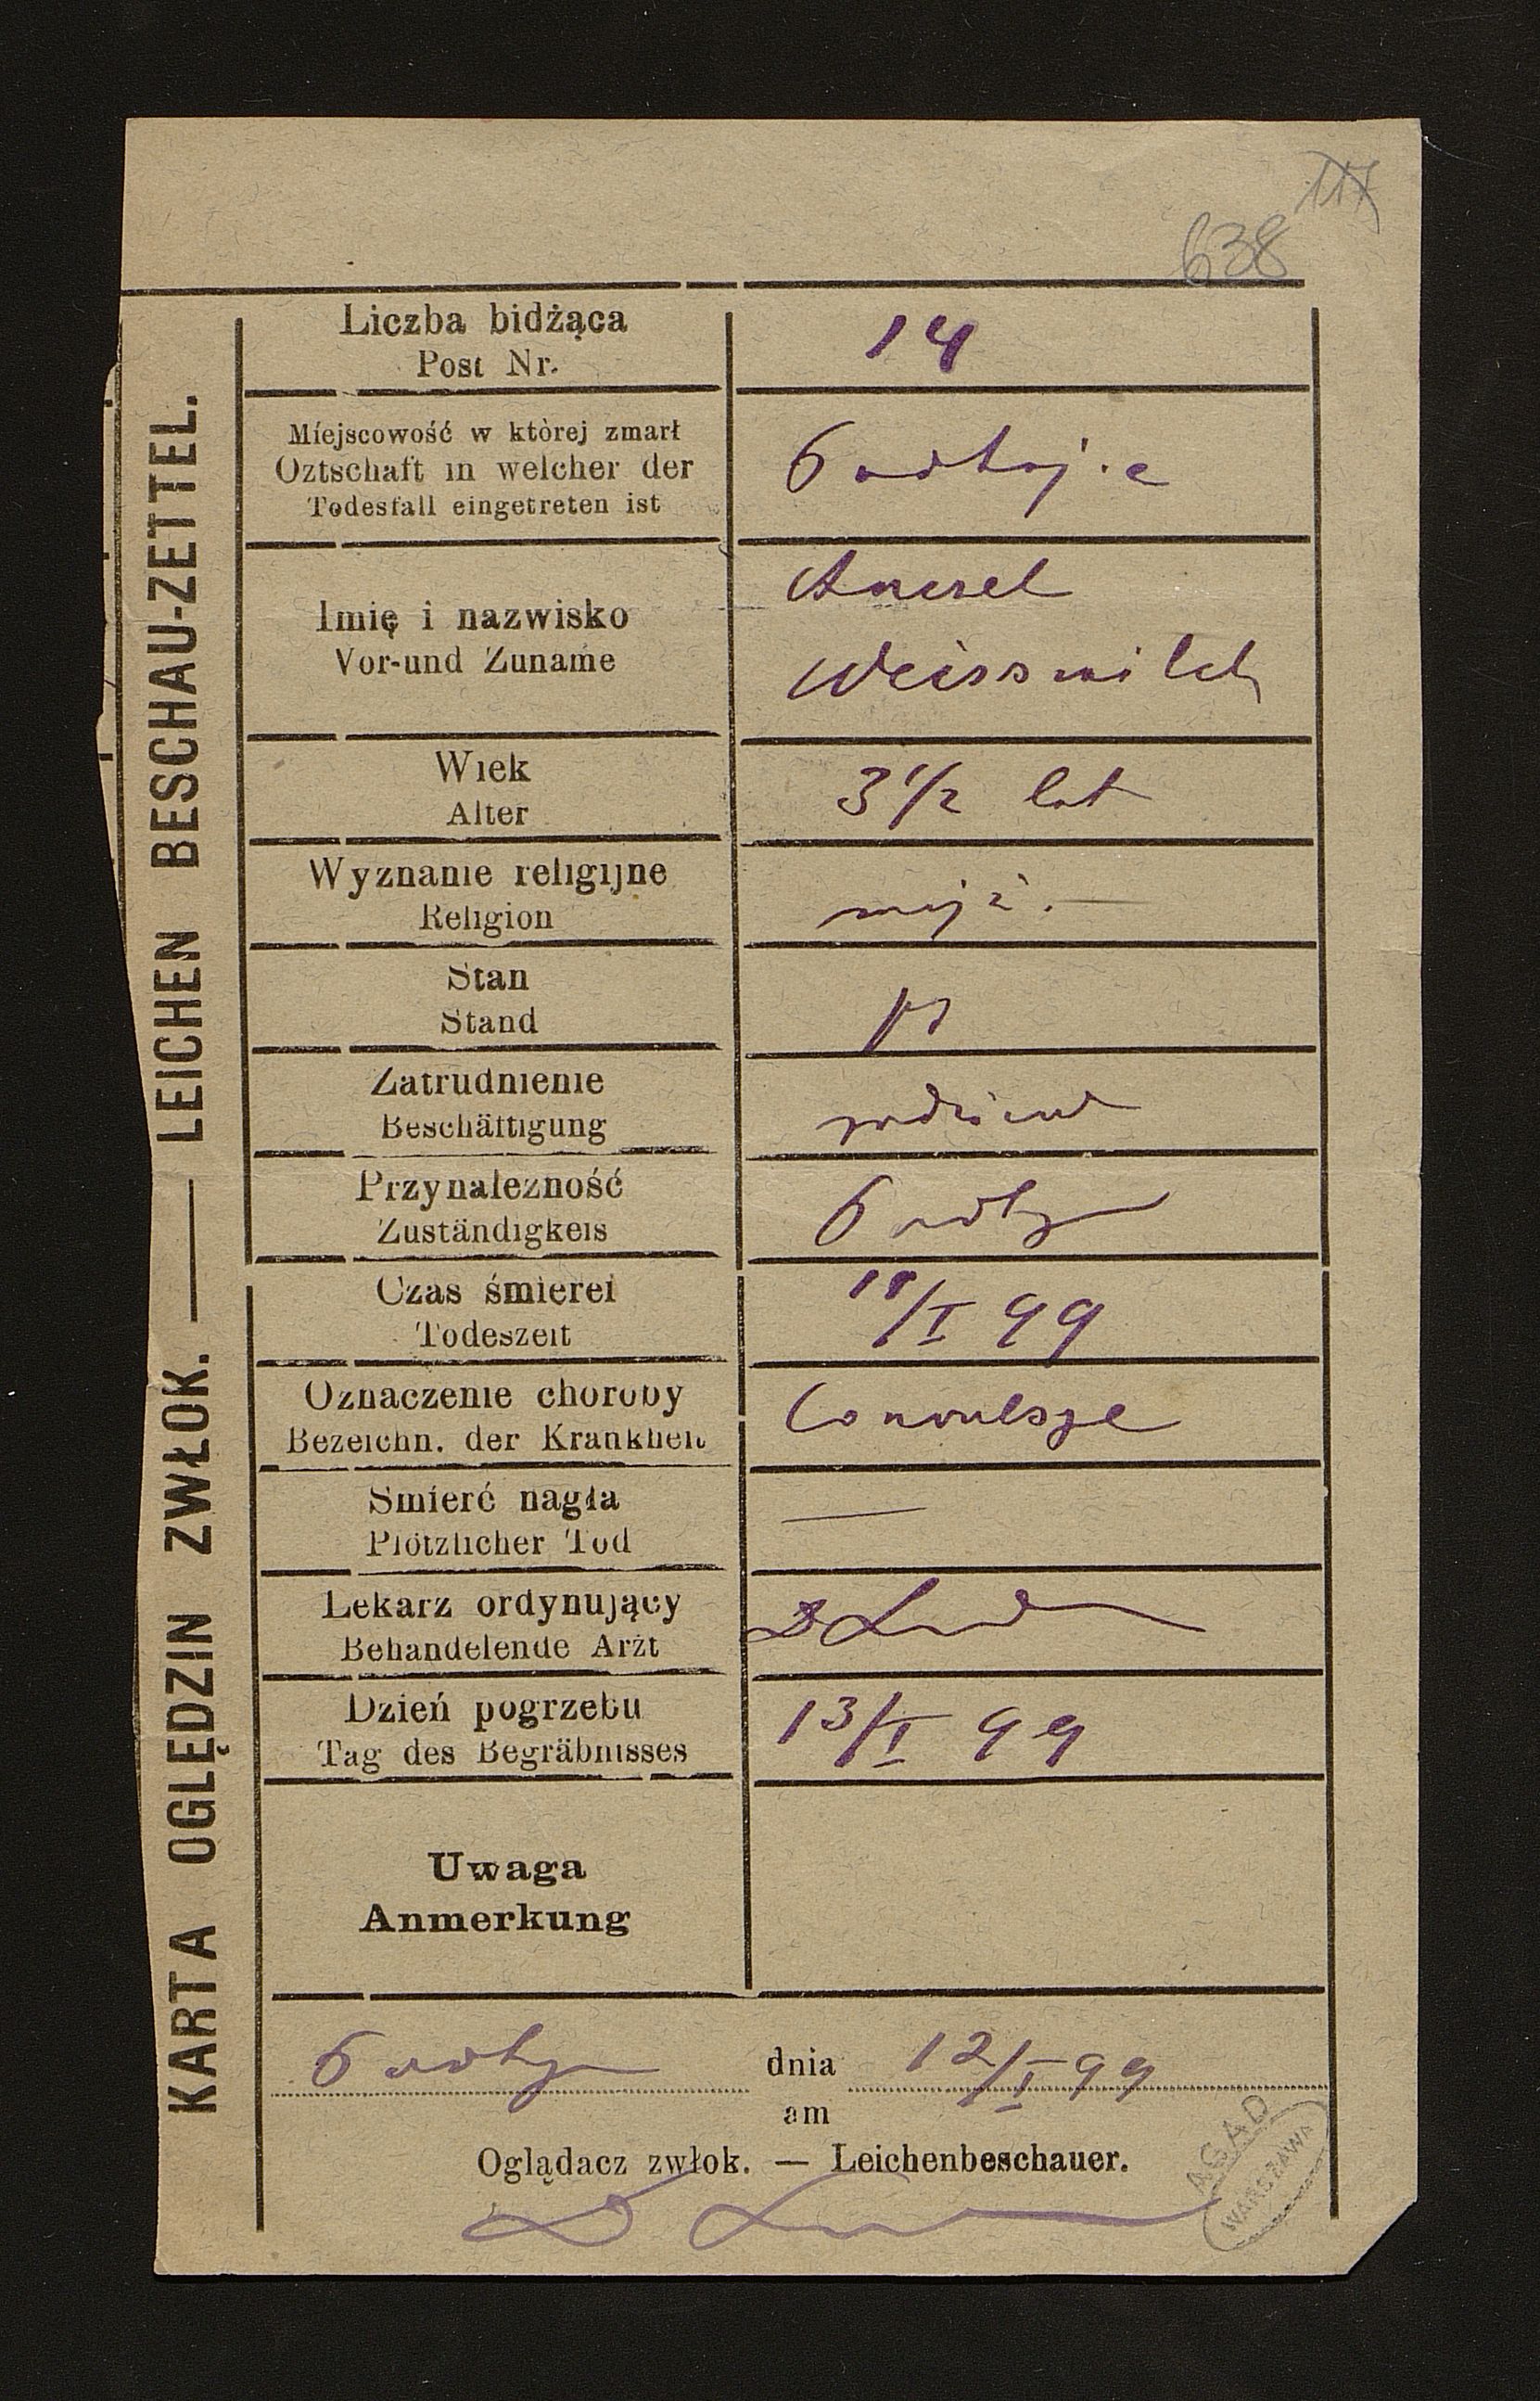 117
638
KARTA OGLĘDZIN ZWŁOK. — LEICHEN BESCHAU-ZETTEL.
Liczba bidżąca
Post Nr.
14
Míejscowość w której zmarł
Oztschaft in welcher der
Todesfall eingetreten ist
Imię i nazwisko
Vor-und Zuname
Amsel
Weissmilch
Wiek
Alter
3 1/2 lat
Wyznanie religijne
Religion
mojż.
Stan
Stand
Zatrudnienie
Beschäftigung
Przynależność
Zuständigkeis
Czas śmierei
Todeszeit
/I 99
Oznaczenie choroby
Bezeichn. der Krankheit
Convulsye
Smierć nagła
Plötzlicher Tod
—
Lekarz ordynujący
Behandelende Arzt
Dzień pogrzebu
Tag des Begräbnisses
13/I 99
Uwaga
Anmerkung
dnia 12/I 99
am
Oglądacz zwłok. — Leichenbeschauer.
AGAD
WARSZAWA